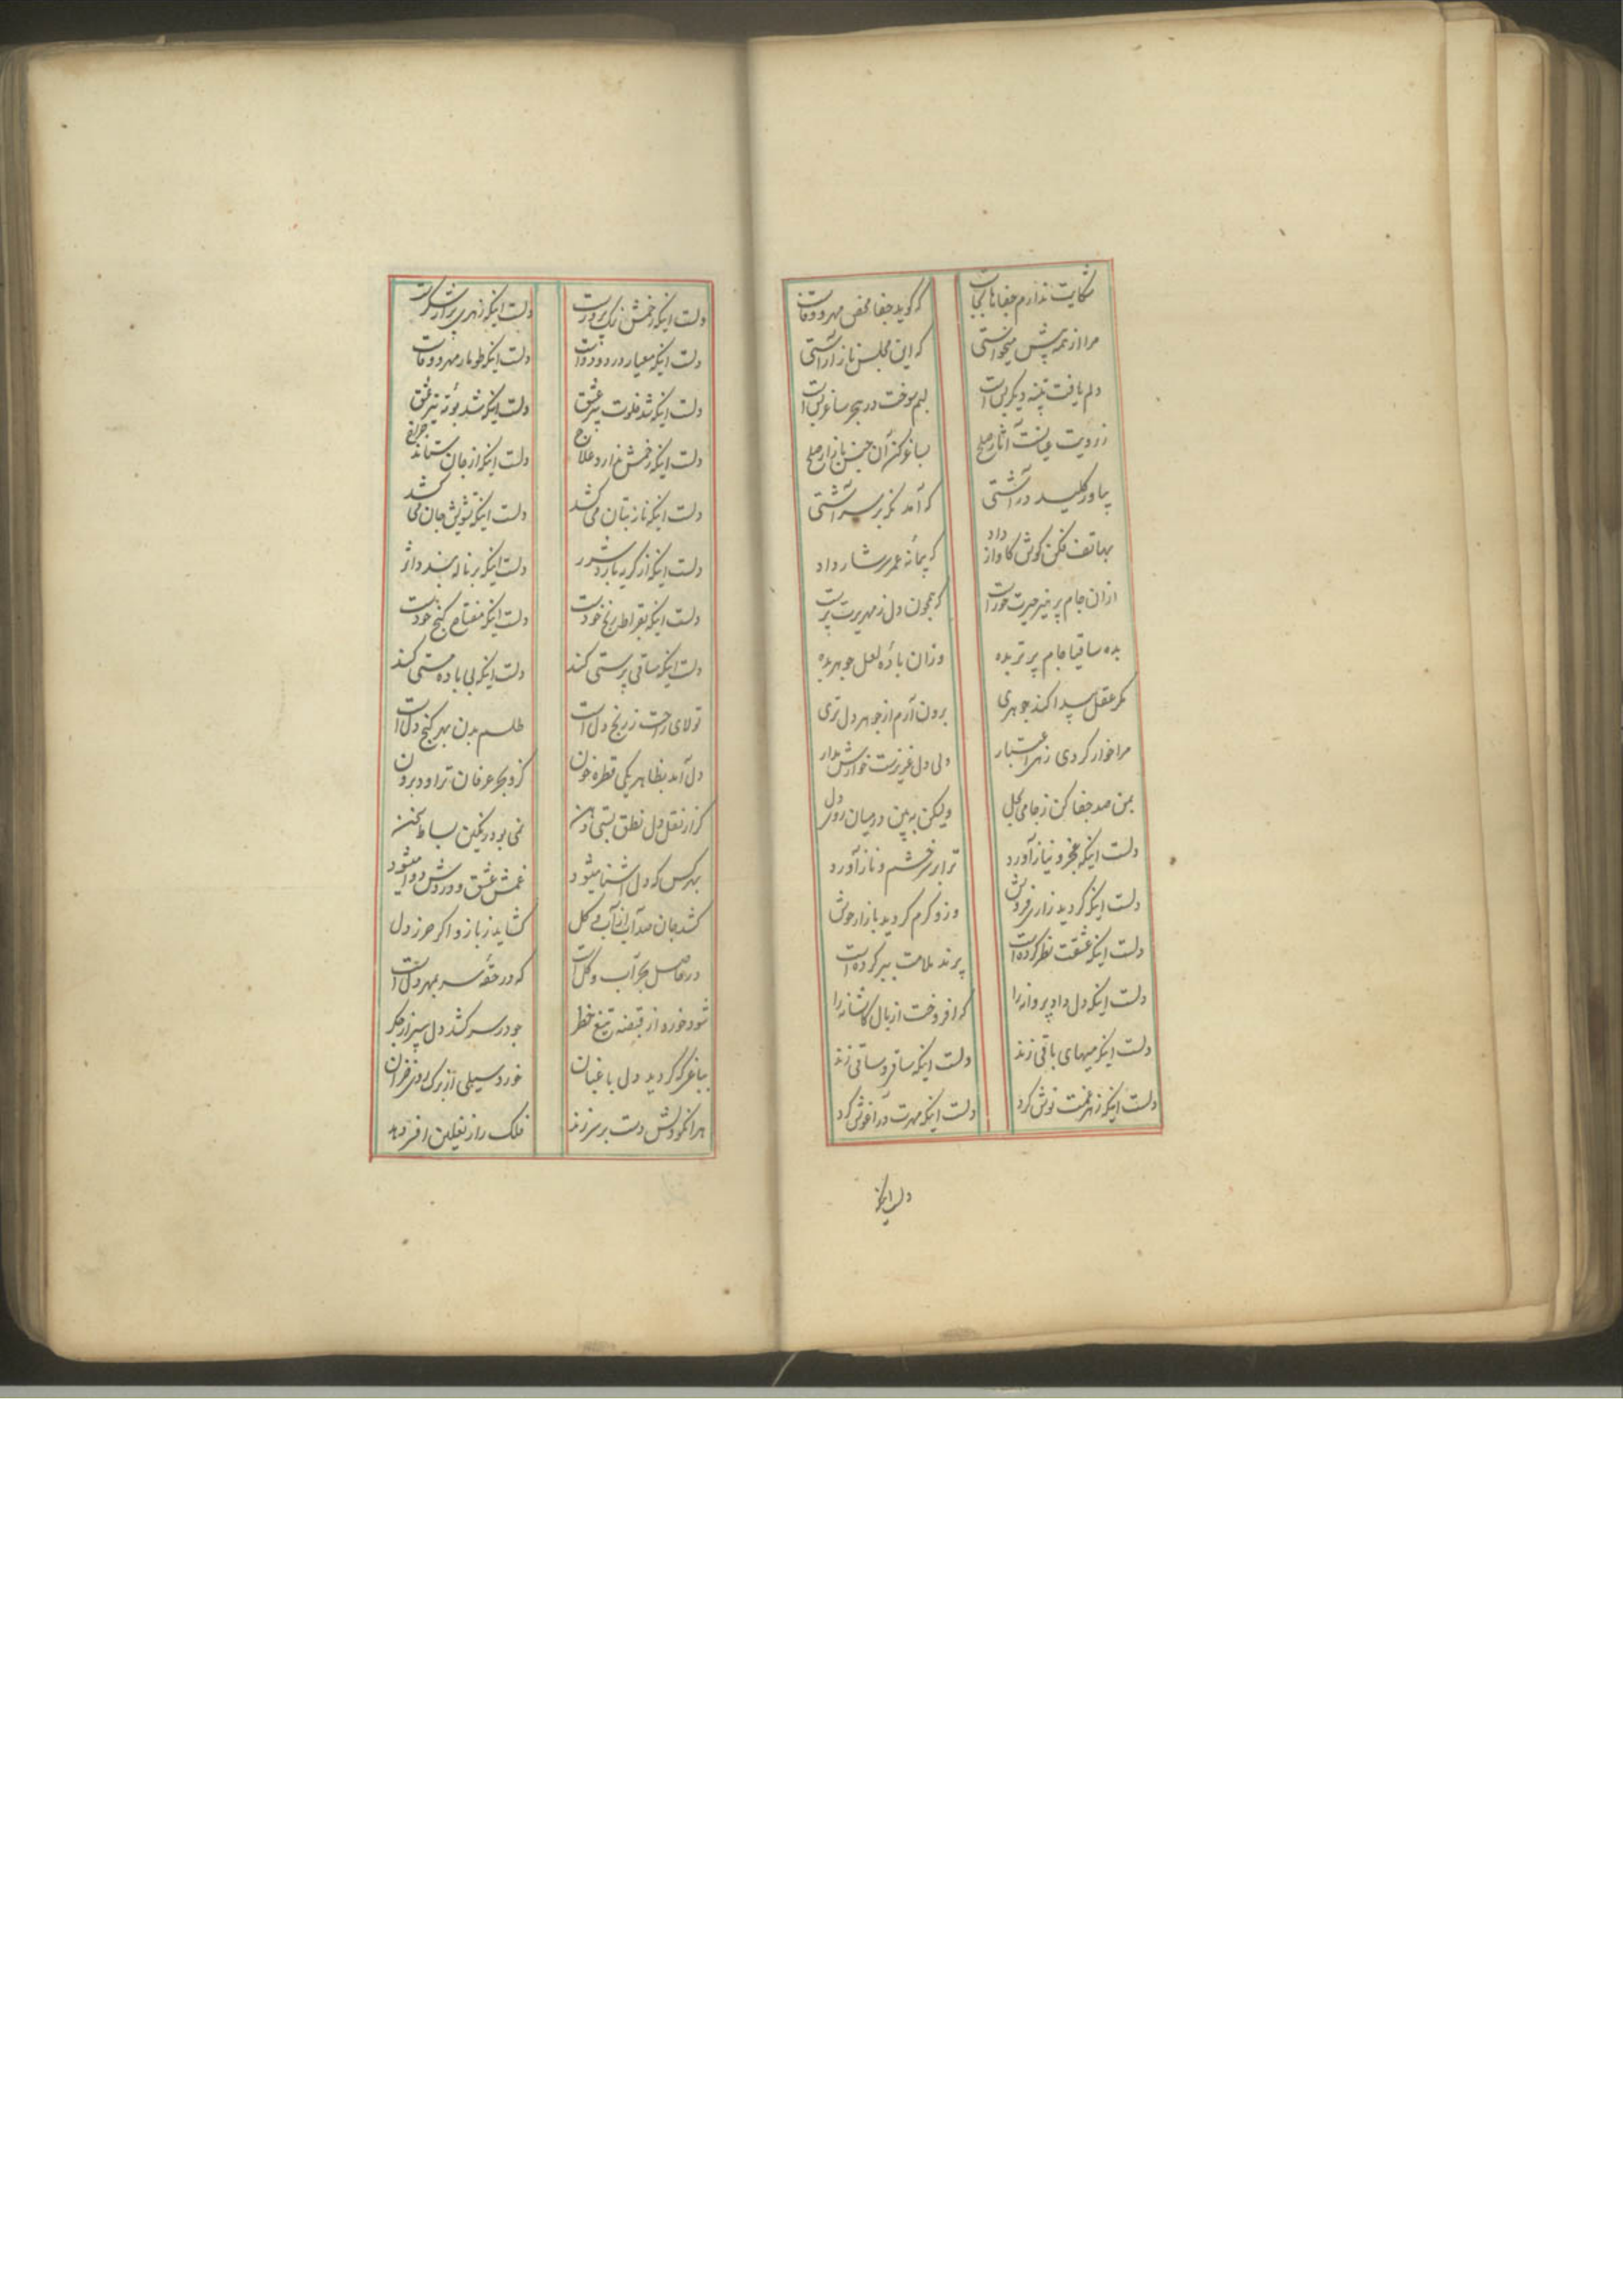 شکایت ندارم جفاها بجاست که گوید جفا محض مهر و وفاست
مرا از همه پیش میخواستی که این مجلس ناز آراستی
دلم یافت دیگر بس است لبم سوخت در هجر ساغر بس است
ز رویت عیانست آثار صلح بساغر کن آن جنس بازار صلح
بیاور کلید در آشتی که آمد بر سر آشتی
بهاتف فکن گوش کاواز داد که پیمانه عمر سرشار داد
ازان جام پر حیرت خور است که همچون دل ز مهر پرست
بده ساقیا جام پرتر بده وزان باده لعل جوهر بده
مگر عقل پیدا کند جوهری برون آرم از جوهر دل تری
مرا خوار کردی ز هر اعتبار ولی دل عزیزست خوارش مدار
بمن صد جفا کن ز جامی بحل ولیکن ببین در میان روی دل
دلست اینکه عجز و نیاز آورد ترا بر سر خشم و ناز آورد
دلست اینکه گردید زاری فروش وزو گرم گردید بازار جوش
دلست اینکه عشقت نظر کرده است پرند ملامت ببر کرده است
دلست اینکه دل داد پروانه را که افروخت از بال کاشانه را
دلست اینکه میهای باقی زند دلست اینکه ساغر و ساقی زند
دلست اینکه زهر غمت نوش کرد دلست اینکه مهرت در آغوش کرد
دلست اینکه
دلست اینکه زخمش نمک پرورست دلست اینکه زهری پر از شکرست
دلست اینکه معیار درد و دواست دلست اینکه طومار مهر و وفاست
دلست اینکه شد خلوت سر عشق دلست اینکه شد بوته تیر عشق
دلست اینکه زخمش ندارد علاج دلست اینکه از جان ستاند خراج
دلست اینکه ناز بتان می کشد دلست اینکه تشویش جان می کشد
دلست اینکه از گریه بارد شرر دلست اینکه بر ناله بندد اثر
دلست اینکه بقراط رنج خودست دلست اینکه مفتاح گنج خودست
دلست اینکه ساقی پرستی کند دلست اینکه بی باده مستی کند
تولای راحت ز رنج دل است طلسم بدن بهر گنج دل است
دل آمد بظاهر یکی قطره خون کزو بحر عرفان تراود برون
گر از نقل دل نطق بستی دهن نمی بود رنگین بساط سخن
بهر کس که دل آشنا میشود غمش عشق و دردش دوا میشود
کشد جان صد از آب و گل گشاید ز بازو اگر حرز دل
در حاصل بحر آب و گل است که در حقه سر بمهر دل است
شود خورده از قبضه تیغ خطر چو در سر کشد دل سپر از جگر
بباغی که گردید دل باغبان خورد سیلی از برگ روی خزان
هر انکو دلش دست بر سر زند فلک را ز نعلین افسر دهد